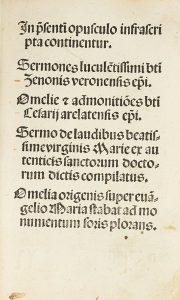 In p̃senti opusculo infrascri
pta continentur.
Sermones luculẽtissimi bti
Zenonis veronensis ep̃i.
Omelie ⁊ admonitiões bti
Cesarij arelatensis ep̃i.
Sermo de laudibus beatis-
sime virginis Marie ex au
tenticis sanctorum docto-
rum dictis compilatus.
Omelia origenis super euã-
gelio Maria stabat ad mo
numentum foris plorans.